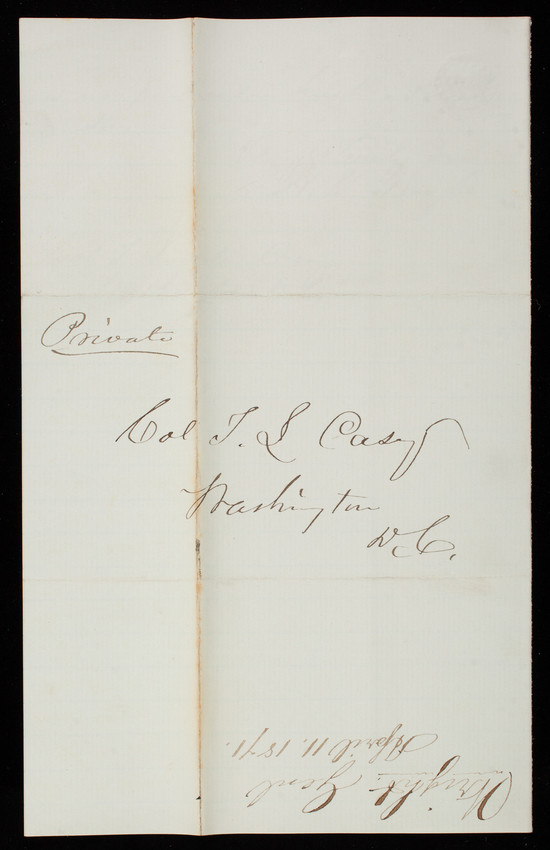 Private
Col T. L Casey
Washington
D.C.
Wright. Genl
April 11. 1871.